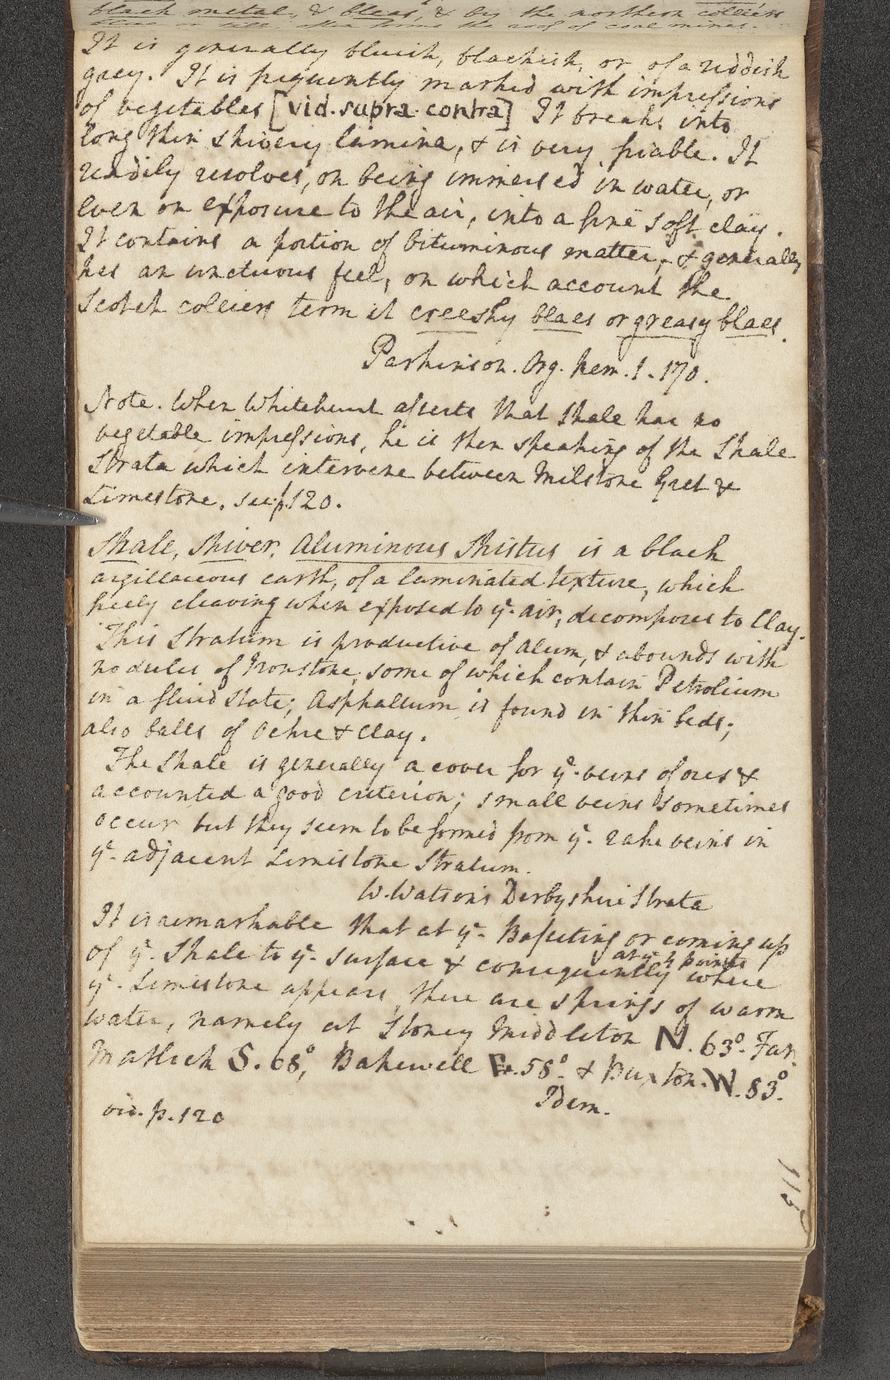 black metal, & bleas, & by the northern colliers
It is generally bluish, blackish, or of a reddish
grey. It is frequently marked with impressions
of vegetables [vid. supra contra] It breaks into
long thin shivery lamina, & is very friable. It
readily resolves, on being immersed in water, or
even on exposure to the air, into a fine soft clay.
It contains a portion of bituminous matter, & generally
has an unctuous feel, on which account the
Scotch colliers term it creeshy blaes or greasy blaes.
Parkinson. Org. Rem. 1. 170.
Note. When Whitehurst asserts that Shale has no
vegetable impressions, he is then speaking of the Shale
Strata which intervene between Milstone Gret &
Limestone. see p. 120.
Shale, Shiver, Aluminous Shistus is a black
argillaceous earth, of a laminated texture, which
freely cleaving when exposed to ye. air, decomposes to Clay.
This Stratum is productive of Alum, & abounds with
nodules of Ironstone, some of which contain Petrolium
in a fluid state; Asphaltum is found in thin beds;
also balls of Ochre & Clay.
The Shale is generally a cover for ye. veins of ores &
accounted a good criterion; small veins sometimes
occur but they seem to be formed from ye. rake veins in
ye. adjacent Limestone Stratum.
W. Watson's Derbyshire Strata
It is remarkable that at ye. Basseting or coming up
of ye. Shale to ye. surface & consequently where
at ye. 4 points
ye. Limestone appears, there are springs of warm
water, namely at Stoney Middleton N. 63°. Far.
Matlock S. 68°, Bakewell E. 58°. & Buxton. W. 83°.
Idem.
vid. p. 120